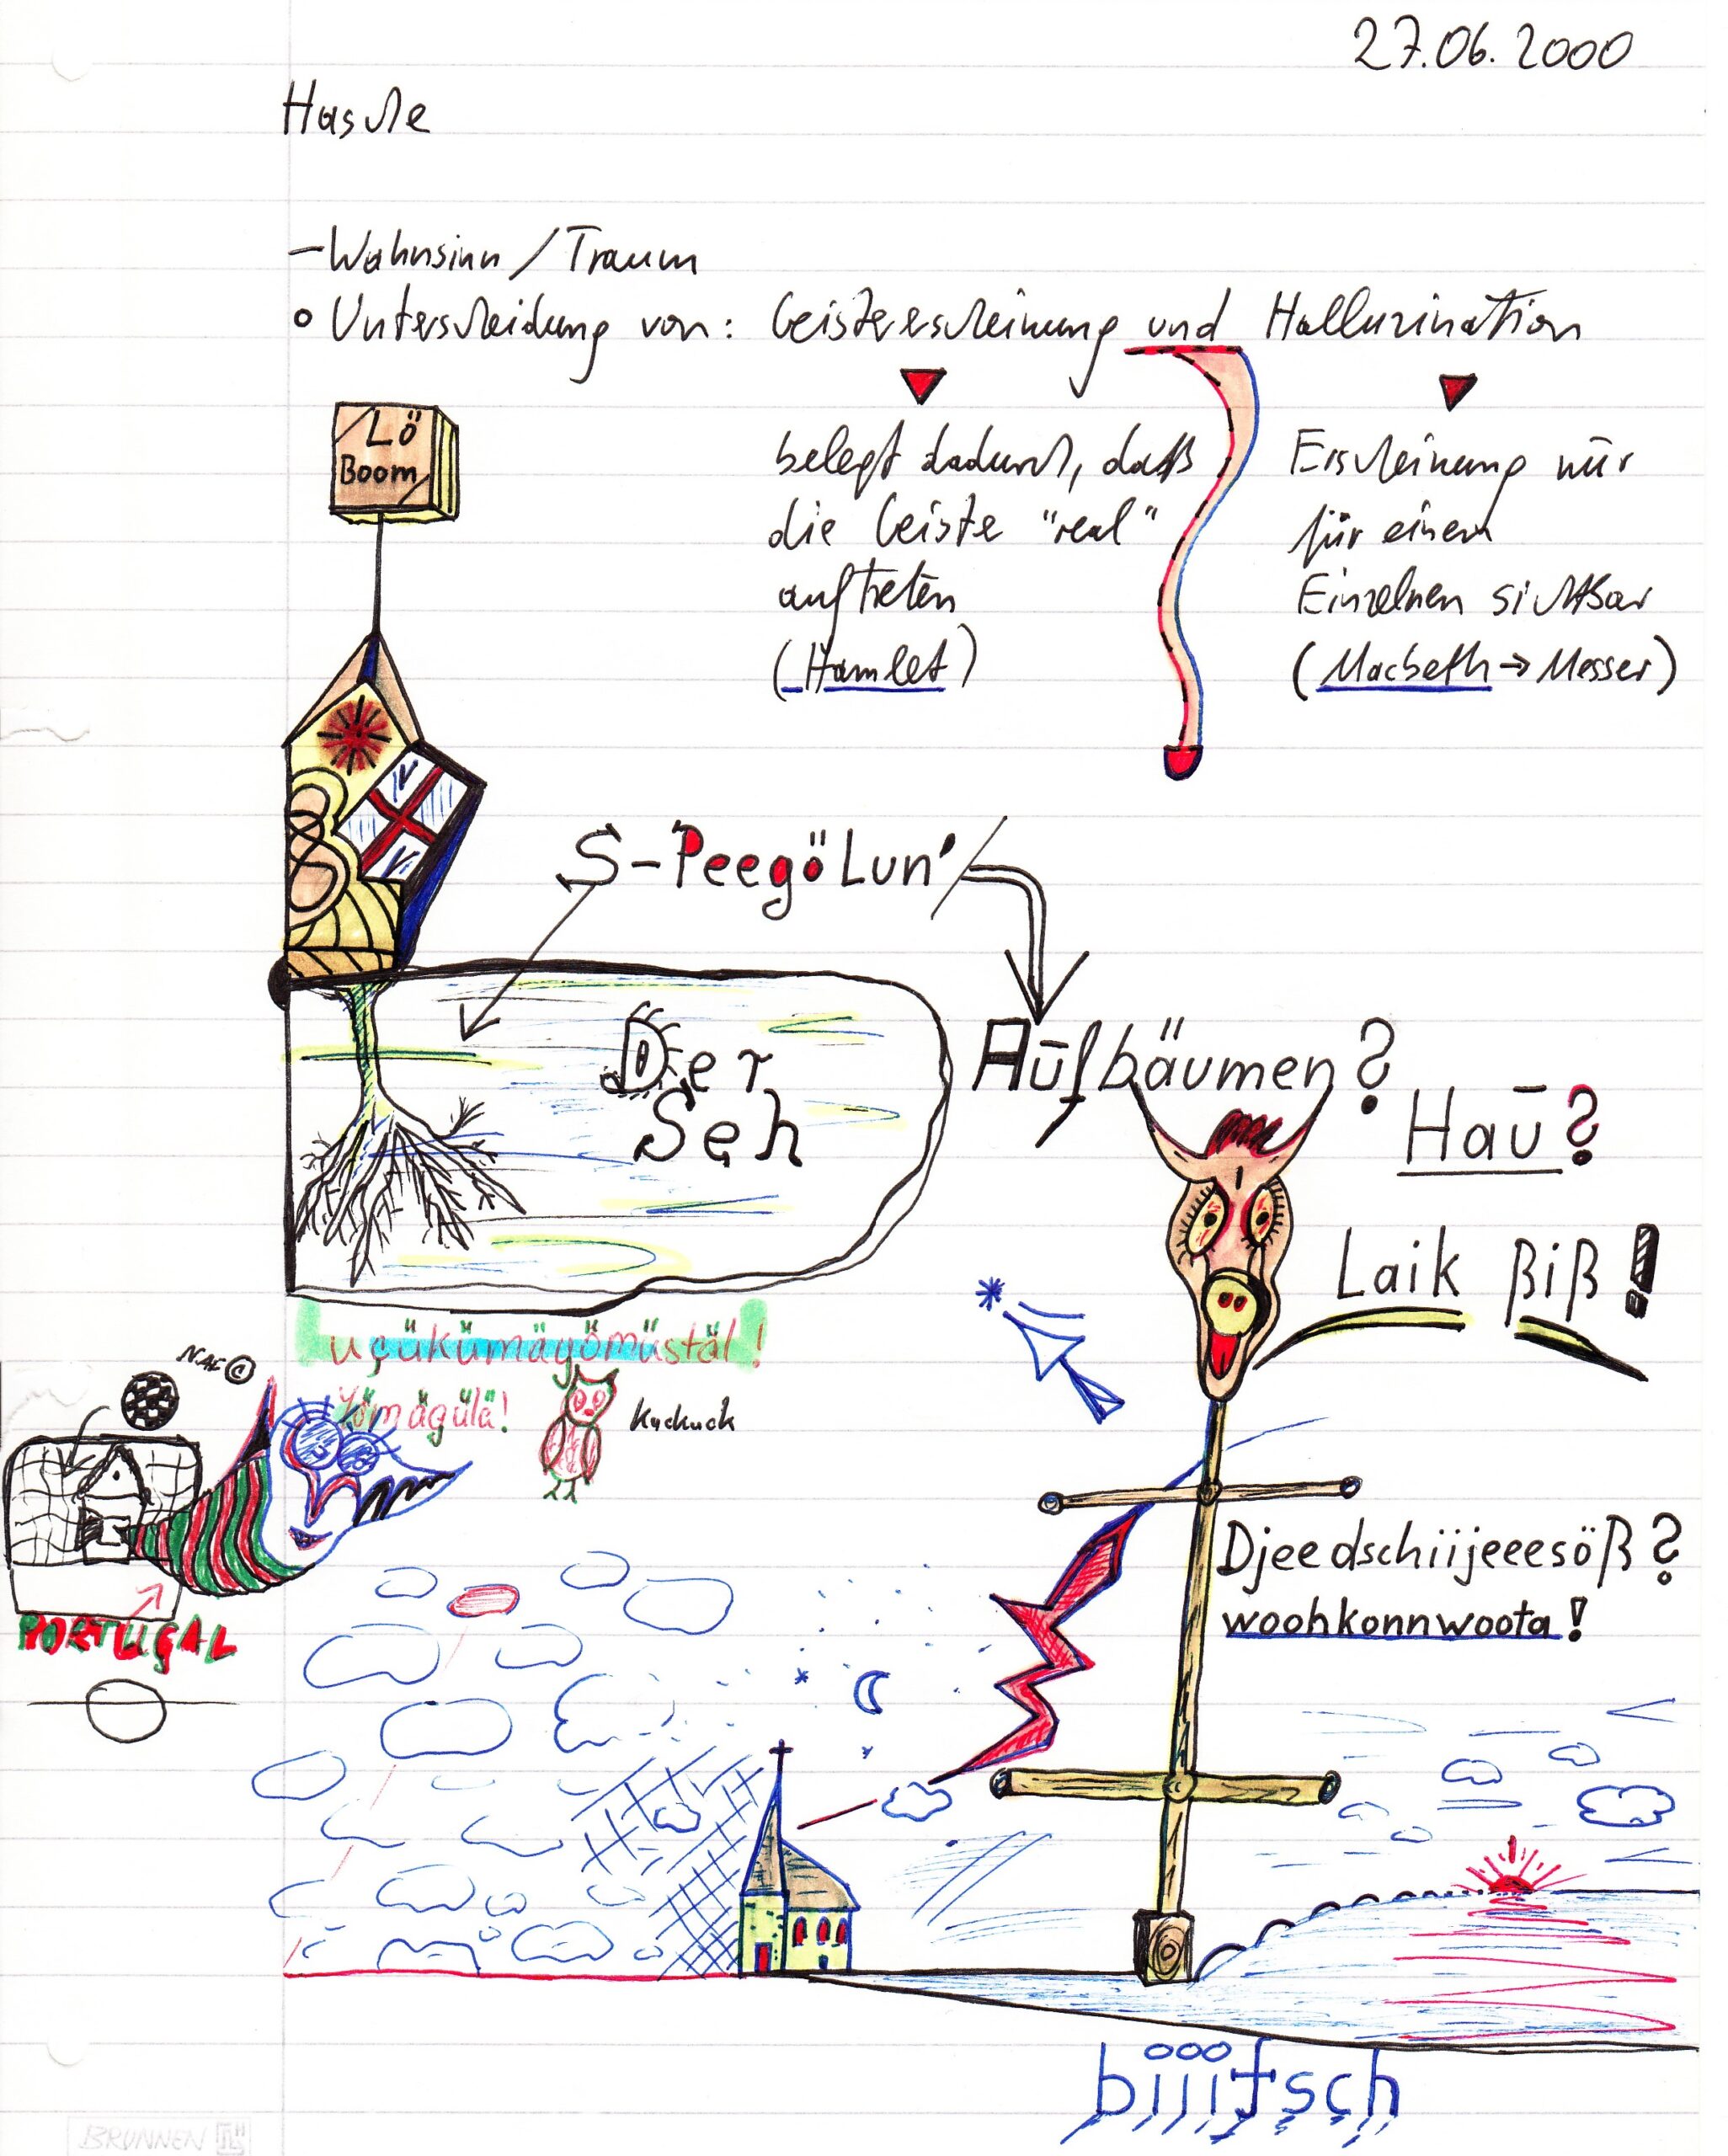 27.06.2000
Hasche
– Wahnsinn / Traum
o Unterscheidung von: Geistererscheinung und Halluzination
belegt dadurch, daß
die Geiste "real"
auftreten
(Hamlet)
Erscheinung nur
für einem
Einzelnen sichtbar
(Macbeth → Messer)
Lö
Boom
S-PeegöLun'
Der
Seh
Aufbäumen?
Haū?
Laik ßiß!
uçükümäyömüstäl!
Yömägülä!
Kuckuck
N.AE ©
PORTUGAL
Djeedschiijeeesöß?
woohkonnwoota!
biiitsch
BRUNNEN